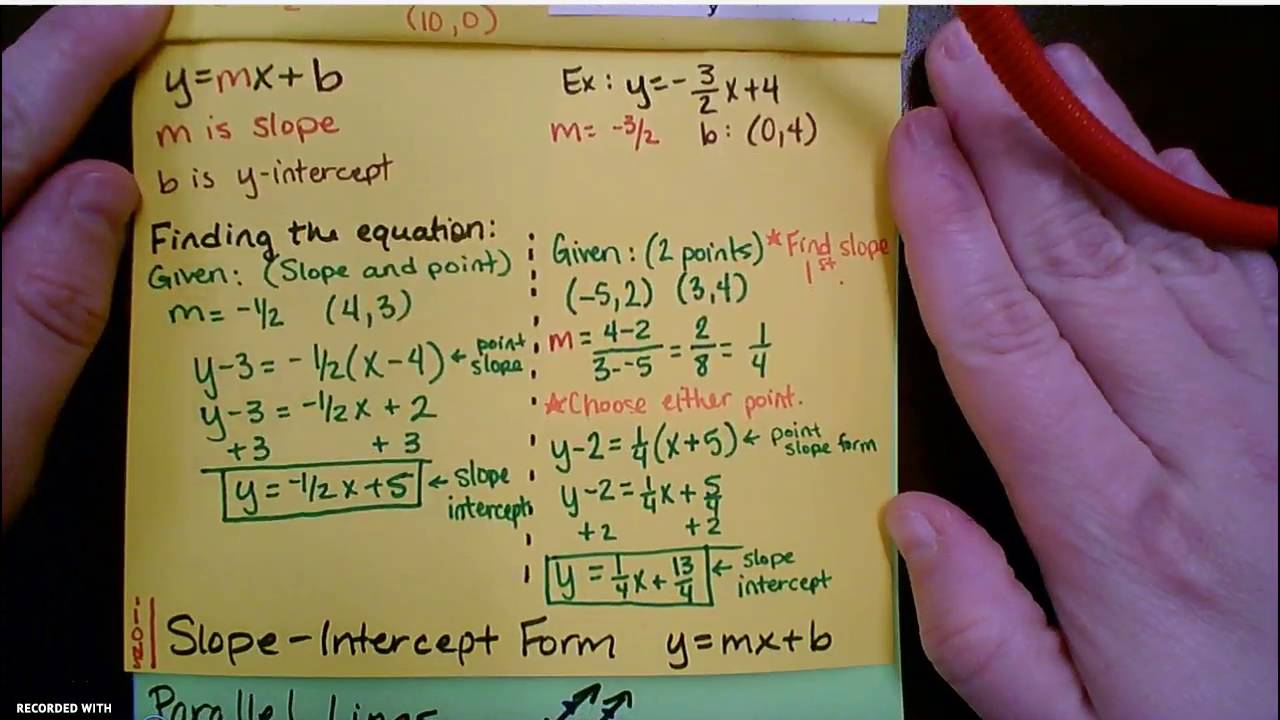 (10,0)
y
y=mx+b
m is slope
b is y-intercept
Ex: y=-3/2x+4
m= -3/2 b: (0,4)
Finding the equation:
Given: (Slope and point)
m= -1/2 (4,3)
y-3 = -1/2(x-4) ← point slope
y-3 = -1/2x + 2
+3 + 3
y = -1/2x+5 ← slope intercept
Given: (2 points) *Find slope 1st.
(-5,2) (3,4)
m = 4-2/3--5 = 2/8 = 1/4
*Choose either point.
y-2=1/4(x+5) ← point slope form
y-2=1/4x+5/4
+2 +2
y = 1/4x+13/4 ← slope intercept
Slope-Intercept Form y=mx+b
Parallel Lines
RECORDED WITH